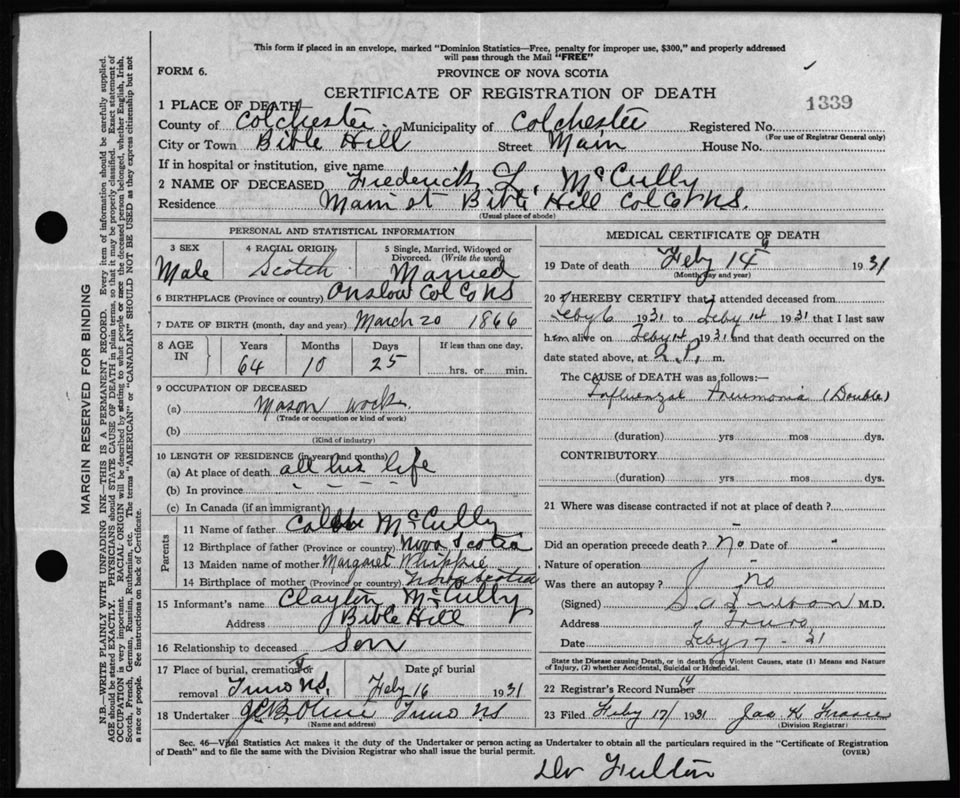 This form if placed in an envelope, marked "Dominion Statistics—Free, penalty for improper use, $300," and properly addressed
will pass through the Mail "FREE"
FORM 6.
PROVINCE OF NOVA SCOTIA
CERTIFICATE OF REGISTRATION OF DEATH
1339
1 PLACE OF DEATH—
County of Colchester Municipality of Colchester Registered No.
(For use of Registrar General only)
City or Town Bible Hill Street Main House No.
If in hospital or institution, give name
2 NAME OF DECEASED Frederick L. McCully
Residence Main st Bible Hill Col Co NS.
(Usual place of abode)
PERSONAL AND STATISTICAL INFORMATION
3 SEX 4 RACIAL ORIGIN 5 Single, Married, Widowed or Divorced. (Write the word)
Male Scotch Married
6 BIRTHPLACE (Province or country) Onslow Col Co NS
7 DATE OF BIRTH (month, day and year) March 20 1866
8 AGE IN Years Months Days If less than one day,
64 10 25 hrs. or min.
9 OCCUPATION OF DECEASED
(a) Mason work
(Trade or occupation or kind of work)
(b)
(Kind of industry)
10 LENGTH OF RESIDENCE (in years and months)
(a) At place of death all his life
(b) In province
(c) In Canada (if an immigrant)
Parents
11 Name of father McCully
12 Birthplace of father (Province or country) Nova Scotia
13 Maiden name of mother Margaret Whippie
14 Birthplace of mother (Province or country) Novascotia
15 Informant's name Clayton McCully
Address Bible Hill
16 Relationship to deceased Son
17 Place of burial, cremation or removal Truro NS. Date of burial Feby 16 1931
18 Undertaker Truro NS
(Name and address)
MEDICAL CERTIFICATE OF DEATH
19 Date of death Feby 14 1931
(Month, day and year)
20 I HEREBY CERTIFY that I attended deceased from
Feby 6 1931 to Feby 14 1931 that I last saw
him alive on Feby 14 1931 and that death occurred on the
date stated above, at 2 P. m.
The CAUSE of DEATH was as follows:—
Influenzal Pneumonia (Double)
(duration) yrs mos dys.
CONTRIBUTORY
(duration) yrs mos dys.
21 Where was disease contracted if not at place of death?
Did an operation precede death? no Date of "
Nature of operation
Was there an autopsy? no
(Signed) M.D.
Address Truro
Date Feby 17 - 31
State the Disease causing Death, or in death from Violent Causes, state (1) Means and Nature
of Injury, (2) whether Accidental, Suicidal or Homicidal.
22 Registrar's Record Number 14
23 Filed Feby 17/ 1931 Jas K
(Division Registrar)
Sec. 46—Vital Statistics Act makes it the duty of the Undertaker or person acting as Undertaker to obtain all the particulars required in the "Certificate of Registration
of Death" and to file the same with the Division Registrar who shall issue the burial permit. (OVER)
Dr Fulton
MARGIN RESERVED FOR BINDING
N.B.—WRITE PLAINLY WITH UNFADING INK—THIS IS A PERMANENT RECORD. Every item of information should be carefully supplied.
AGE should be stated EXACTLY. PHYSICIANS should STATE CAUSE OF DEATH in plain terms, so that it may be properly classified. Exact statement of
OCCUPATION is very important. RACIAL ORIGIN will be described by stating to what people or race the deceased person belonged, whether English, Irish,
Scotch, French, German, Russian, Ruthenian, etc. The terms "AMERICAN" or "CANADIAN" SHOULD NOT BE USED as they express citizenship but not
a race or people. See instructions on back of Certificate.